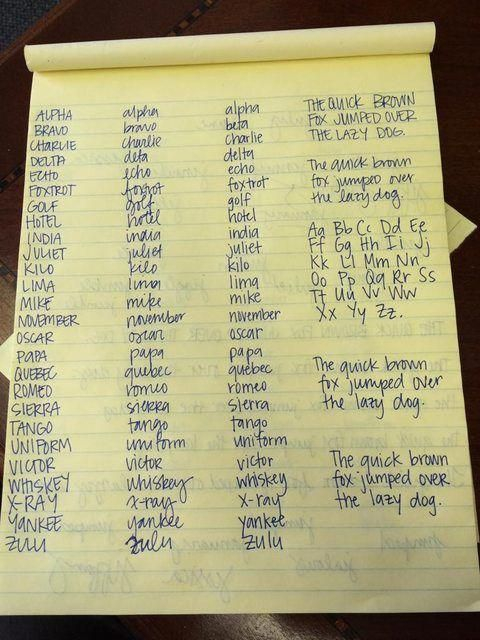 ALPHA
BRAVO
CHARLIE
DELTA
ECHO
FOXTROT
GOLF
HOTEL
INDIA
JULIET
KILO
LIMA
MIKE
NOVEMBER
OSCAR
PAPA
QUEBEC
ROMEO
SIERRA
TANGO
UNIFORM
VICTOR
WHISKEY
X-RAY
YANKEE
ZULU
alpha
bravo
charlie
delta
echo
foxtrot
golf
hotel
india
juliet
kilo
lima
mike
november
oscar
papa
quebec
romeo
sierra
tango
uniform
victor
whiskey
x-ray
yankee
zulu
alpha
beta
charlie
delta
echo
foxtrot
golf
hotel
india
juliet
kilo
lima
mike
november
oscar
papa
quebec
romeo
sierra
tango
uniform
victor
whiskey
x-ray
yankee
zulu
THE QUICK BROWN
FOX JUMPED OVER
THE LAZY DOG.
the quick brown
fox jumped over
the lazy dog.
Aa Bb Cc Dd Ee
Ff Gg Hh Ii Jj
Kk Ll Mm Nn
Oo Pp Qq Rr Ss
Tt Uu Vv Ww
Xx Yy Zz.
The quick brown
fox jumped over
the lazy dog.
The quick brown
fox jumped over
the lazy dog.